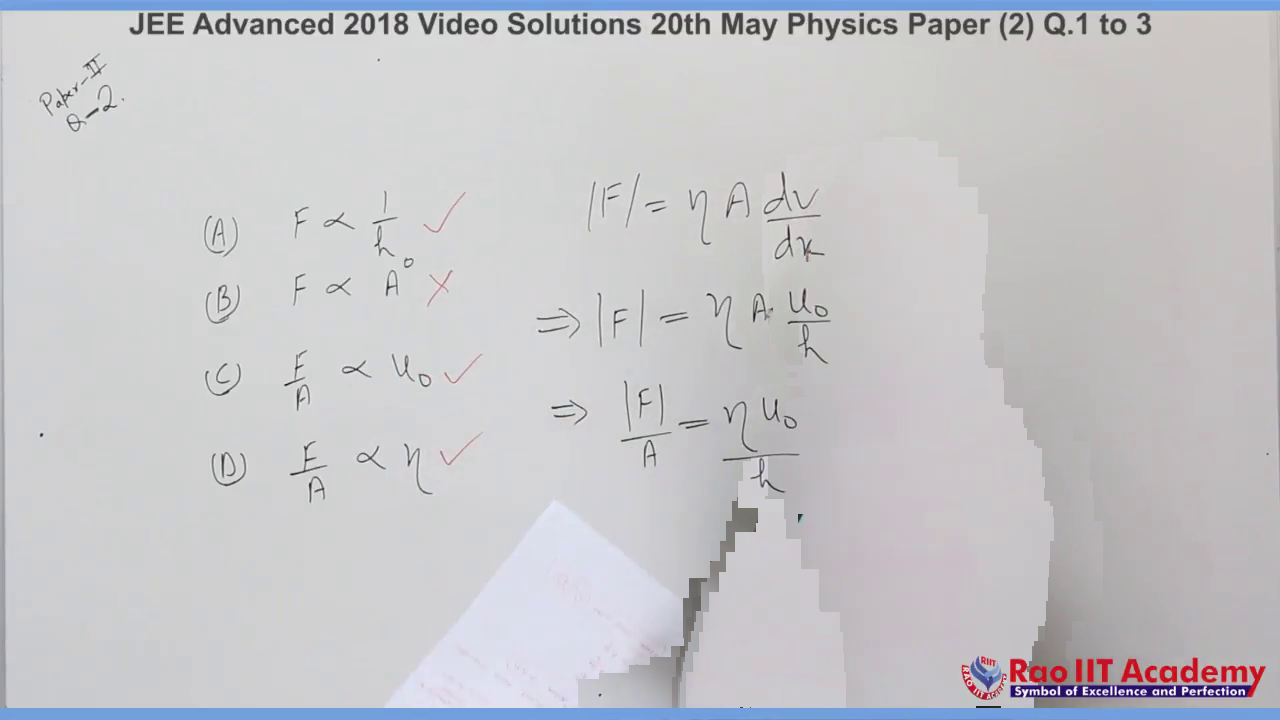 JEE Advanced 2018 Video Solutions 20th May Physics Paper (2) Q.1 to 3
Paper-II
Q-2.
(A) F ∝ 1/h ✓
(B) F ∝ A⁰ ✗
(C) F/A ∝ u₀ ✓
(D) F/A ∝ η ✓
|F| = η A dv/dx
⇒ |F| = η A. u₀/h
⇒ |F|/A = η u₀/h
RIIT
RAO IIT ACADEMY
Rao IIT Academy
Symbol of Excellence and Perfection